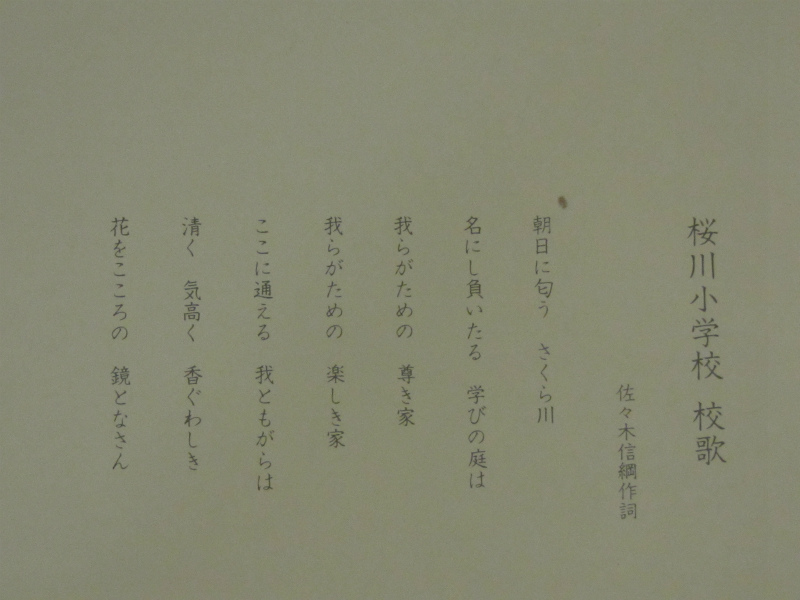 桜川小学校 校歌
佐々木信綱作詞
朝日に匂う さくら川
名にし負いたる 学びの庭は
我らがための 尊き家
我らがための 楽しき家
ここに通える 我ともがらは
清く 気高く 香ぐわしき
花をこころの 鏡となさん